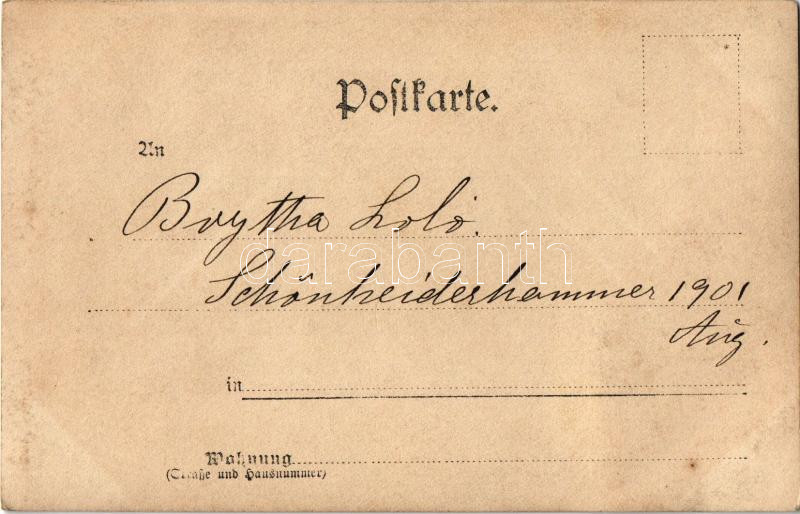 Postkarte.
An
Brytha Lolo.
darabanth
Schönheiderhammer 1901
Aug.
in
Wohnung
(Straße und Hausnummer)